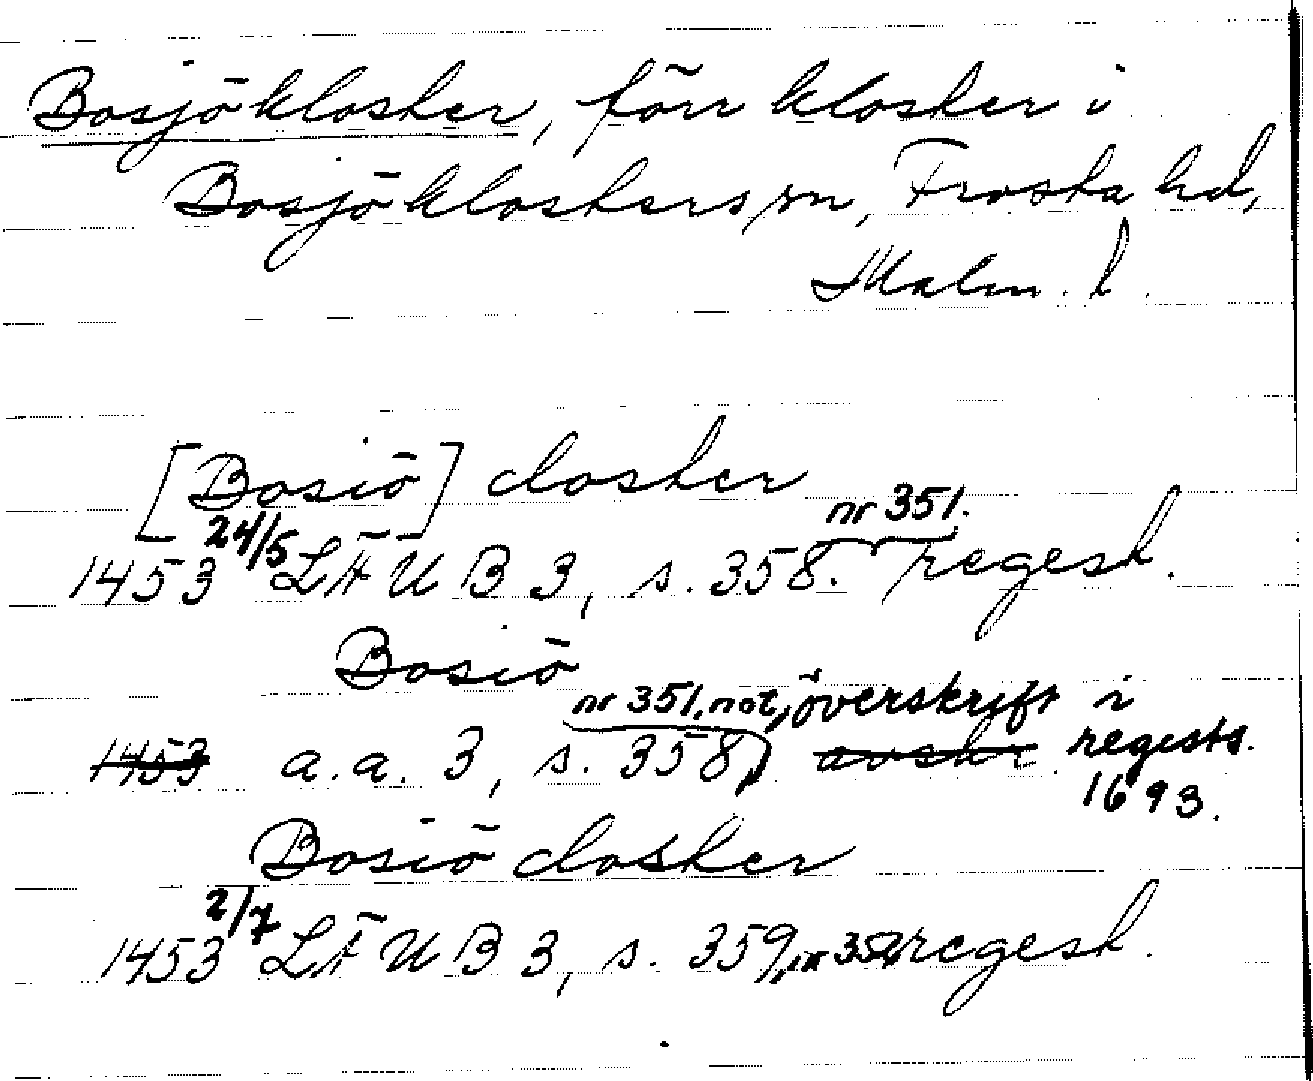 Bosjökloster, förr kloster i
Bosjöklosters sn, Frosta hd,
Malm. l.
[Bosiö] closter
1453 24/5 LÄUB 3, s. 358. nr 351. regest.
Bosiö
1453 a.a. 3, s. 358, nr 351, not, överskrift i
avskr regests.
1693.
Bosiö closter
1453 2/7 LÄUB 3, s. 359, nr 352, regest.